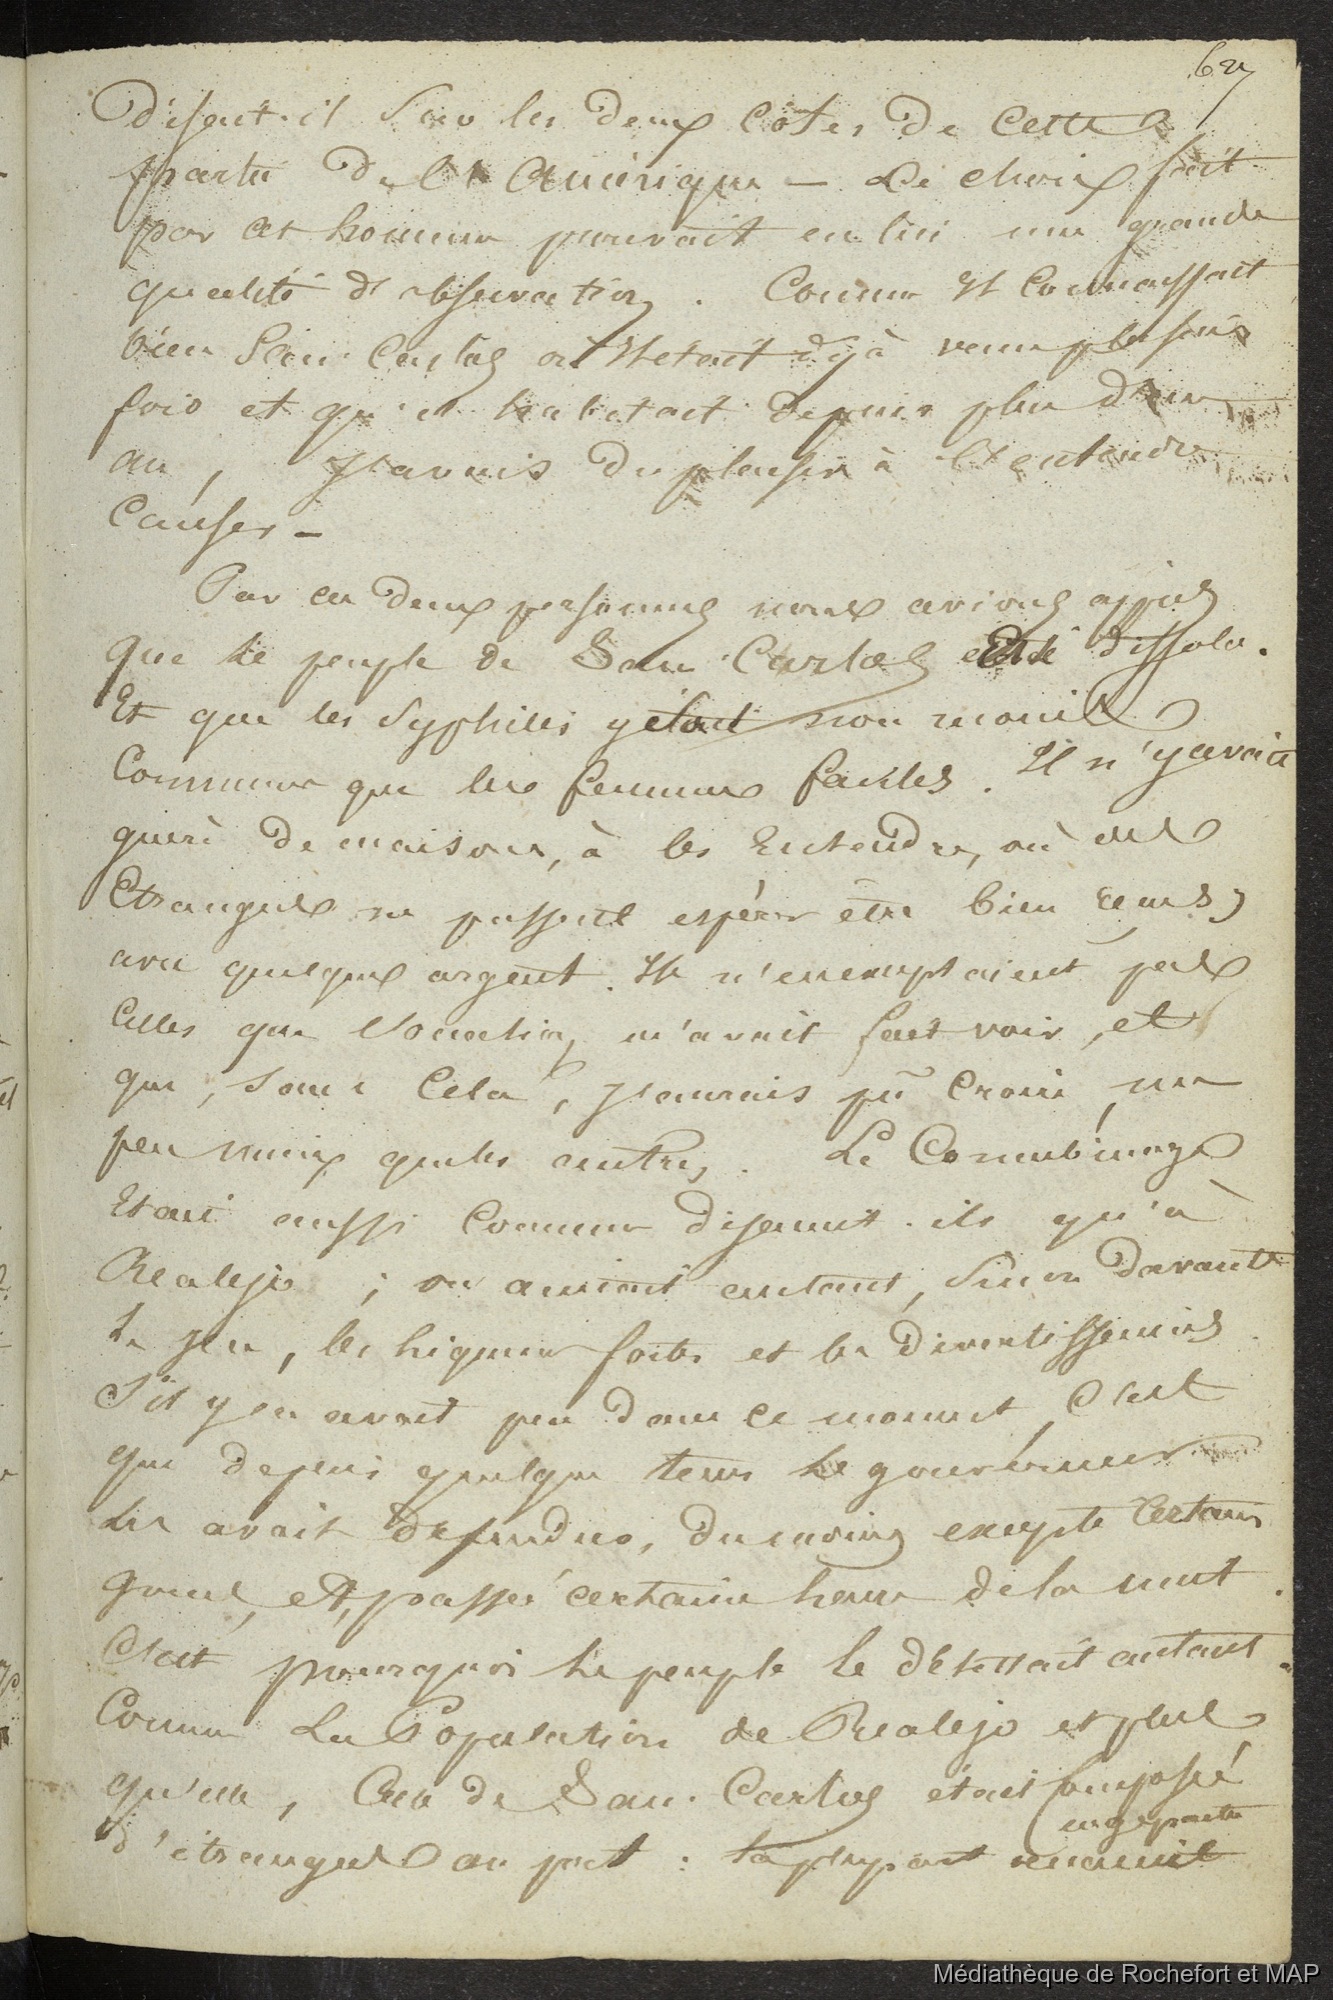 627
disait-il sur les deux côtes de cette
partie de l'Amérique — Le choix fait
par cet homme prouvait en lui une grande
qualité d'observation. Comme il connaissait
bien San Carlos où il était déjà venu plusieurs
fois et qu'il habitait depuis plus d'un
an, j'avais du plaisir à l'entendre
causer —
Par ces deux personnes nous avions appris
que le peuple de San Carlos était dissolu.
Et que les syphilis y était non moins
commune que les femmes faciles. Il n'y avait
guère de maisons, à les entendre, où des
Etrangers ne pussent espérer être bien venus,
avec quelque argent. Ils n'en exemptaient pas
celles que Donatien m'avait fait voir, et
que, sans cela, j'aurais pu croire un
peu mieux que les autres. Le Concubinage
Etait aussi commun disaient-ils qu'à
Realejo ; on aimait autant, sinon davantage
le jeu, les liqueurs fortes et les divertissemens
S'il y en avait peu dans ce moment, c'est
que depuis quelque tems le gouverneur
les avait défendus, du moins excepté certains
jours, et passé certaine heure de la nuit.
C'est pourquoi le peuple le détestait autant.
Comme la Population de Realejo et plus
qu'elle, Celle de San Carlos était composée
en g. partie
d'étrangers au port : la plupart venaient
Médiathèque de Rochefort et MAP